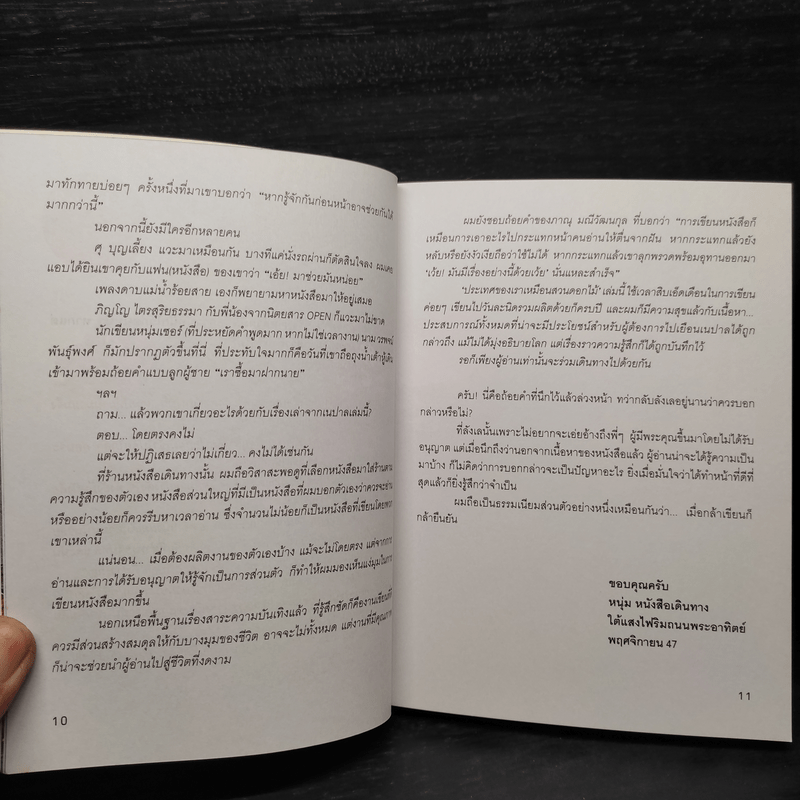 มาทักทายบ่อยๆ ครั้งหนึ่งที่มาเขาบอกว่า “หากรู้จักกันก่อนหน้าอาจช่วยกันได้
มากกว่านี้”
นอกจากนี้ยังมีใครอีกหลายคน
ศุ บุญเลี้ยง แวะมาเหมือนกัน บางทีแค่นั่งรถผ่านก็ตัดสินใจลง ผมเคย
แอบได้ยินเขาคุยกับแฟน(หนังสือ) ของเขาว่า “เอ้ย! มาช่วยมันหน่อย”
เพลงดาบแม่น้ำร้อยสาย เองก็พยายามหาหนังสือมาให้อยู่เสมอ
ภิญโญ ไตรสุริยธรรมา กับพี่น้องจากนิตยสาร OPEN ก็แวะมาไม่ขาด
นักเขียนหนุ่มเซอร์ (ที่ประหยัดคำพูดมาก หากไม่ใช่เวลางาน) นาม วรพจน์
พันธุ์พงศ์ ก็มักปรากฏตัวขึ้นที่นี่ ที่ประทับใจมากก็คือวันที่เขาถือถุงน้ำเต้าหู้เดิน
เข้ามาพร้อมถ้อยคำแบบลูกผู้ชาย “เราซื้อมาฝากนาย”
ฯลฯ
ถาม... แล้วพวกเขาเกี่ยวอะไรด้วยกับเรื่องเล่าจากเนปาลเล่มนี้?
ตอบ... โดยตรงคงไม่
แต่จะให้ปฏิเสธเลยว่าไม่เกี่ยว... คงไม่ได้เช่นกัน
ที่ร้านหนังสือเดินทางนั้น ผมถือวิสาสะพอดูที่เลือกหนังสือมาใส่ร้านตาม
ความรู้สึกของตัวเอง หนังสือส่วนใหญ่ที่มีเป็นหนังสือที่ผมบอกตัวเองว่าควรจะอ่าน
หรืออย่างน้อยก็ควรรีบหาเวลาอ่าน ซึ่งจำนวนไม่น้อยก็เป็นหนังสือที่เขียนโดยพวก
เขาเหล่านี้
แน่นอน... เมื่อต้องผลิตงานของตัวเองบ้าง แม้จะไม่โดยตรง แต่จากการ
อ่านและการได้รับอนุญาตให้รู้จักเป็นการส่วนตัว ก็ทำให้ผมมองเห็นแง่มุมในการ
เขียนหนังสือมากขึ้น
นอกเหนือพื้นฐานเรื่องสาระความบันเทิงแล้ว ที่รู้สึกชัดก็คืองานเขียนที่ดี
ควรมีส่วนสร้างสมดุลให้กับบางมุมของชีวิต อาจจะไม่ทั้งหมด แต่งานที่มีคุณภาพ
ก็น่าจะช่วยนำผู้อ่านไปสู่ชีวิตที่งดงาม
10
ผมยังชอบถ้อยคำของภาณุ มณีวัฒนกุล ที่บอกว่า “การเขียนหนังสือก็
เหมือนการเอาอะไรไปกระแทกหน้าคนอ่านให้ตื่นจากฝัน หากกระแทกแล้วยัง
หลับหรือยังงัวเงียถือว่าใช้ไม่ได้ หากกระแทกแล้วเขาลุกพรวดพร้อมอุทานออกมา
‘เว้ย! มันมีเรื่องอย่างนี้ด้วยเว้ย’ นั่นแหละสำเร็จ”
‘ประเทศของเราเหมือนสวนดอกไม้’ เล่มนี้ใช้เวลาสิบเอ็ดเดือนในการเขียน
ค่อยๆ เขียนไปวันละนิดรวมผลิตด้วยก็ครบปี และผมก็มีความสุขแล้วกับเนื้อหา...
ประสบการณ์ทั้งหมดที่น่าจะมีประโยชน์สำหรับผู้ต้องการไปเยือนเนปาลได้ถูก
กล่าวถึง แม้ไม่ได้มุ่งอธิบายโลก แต่เรื่องราวความรู้สึกก็ได้ถูกบันทึกไว้
รอก็เพียงผู้อ่านเท่านั้นจะร่วมเดินทางไปด้วยกัน
ครับ! นี่คือถ้อยคำที่นึกไว้แล้วล่วงหน้า ทว่ากลับลังเลอยู่นานว่าควรบอก
กล่าวหรือไม่?
ที่ลังเลนั้นเพราะไม่อยากจะเอ่ยอ้างถึงพี่ๆ ผู้มีพระคุณขึ้นมาโดยไม่ได้รับ
อนุญาต แต่เมื่อนึกถึงว่านอกจากเนื้อหาของหนังสือแล้ว ผู้อ่านน่าจะได้รู้ความเป็น
มาบ้าง ก็ไม่คิดว่าการบอกกล่าวจะเป็นปัญหาอะไร ยิ่งเมื่อมั่นใจว่าได้ทำหน้าที่ดีที่
สุดแล้วก็ยิ่งรู้สึกว่าจำเป็น
ผมถือเป็นธรรมเนียมส่วนตัวอย่างหนึ่งเหมือนกันว่า... เมื่อกล้าเขียนก็
กล้ายืนยัน
ขอบคุณครับ
หนุ่ม หนังสือเดินทาง
ใต้แสงไฟริมถนนพระอาทิตย์
พฤศจิกายน 47
11